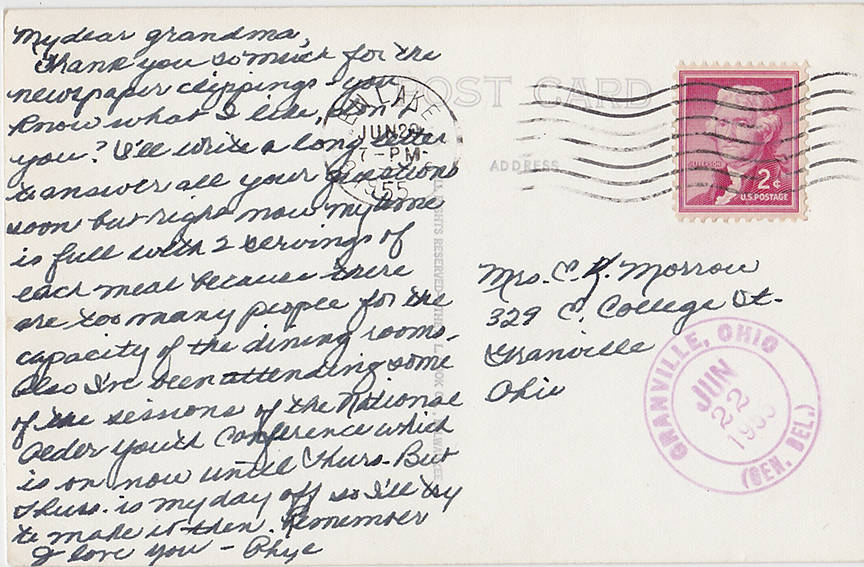 My dear grandma,
Thank you so much for the
newspaper clippings - you
know what I like, don't
you? I'll write a long letter
to answer all your questions
soon but right now my time
is full with 2 servings of
each meal because there
are too many people for the
capacity of the dining rooms.
Also I've been attending some
of the sessions of the National
Older Youth Conference which
is on now until Thurs. But
Thurs. is my day off so I'll try
to make it then. Remember
I love you - Phye
POST CARD
ADDRESS
LAKE
JUN 20
7 - PM
1955
RIGHTS RESERVED
JEFFERSON
2¢
U.S. POSTAGE
Mrs. C. K. Morrow
329 E. College St.
Granville
Ohio
GRANVILLE, OHIO
JUN
22
1955
(GEN. DEL.)